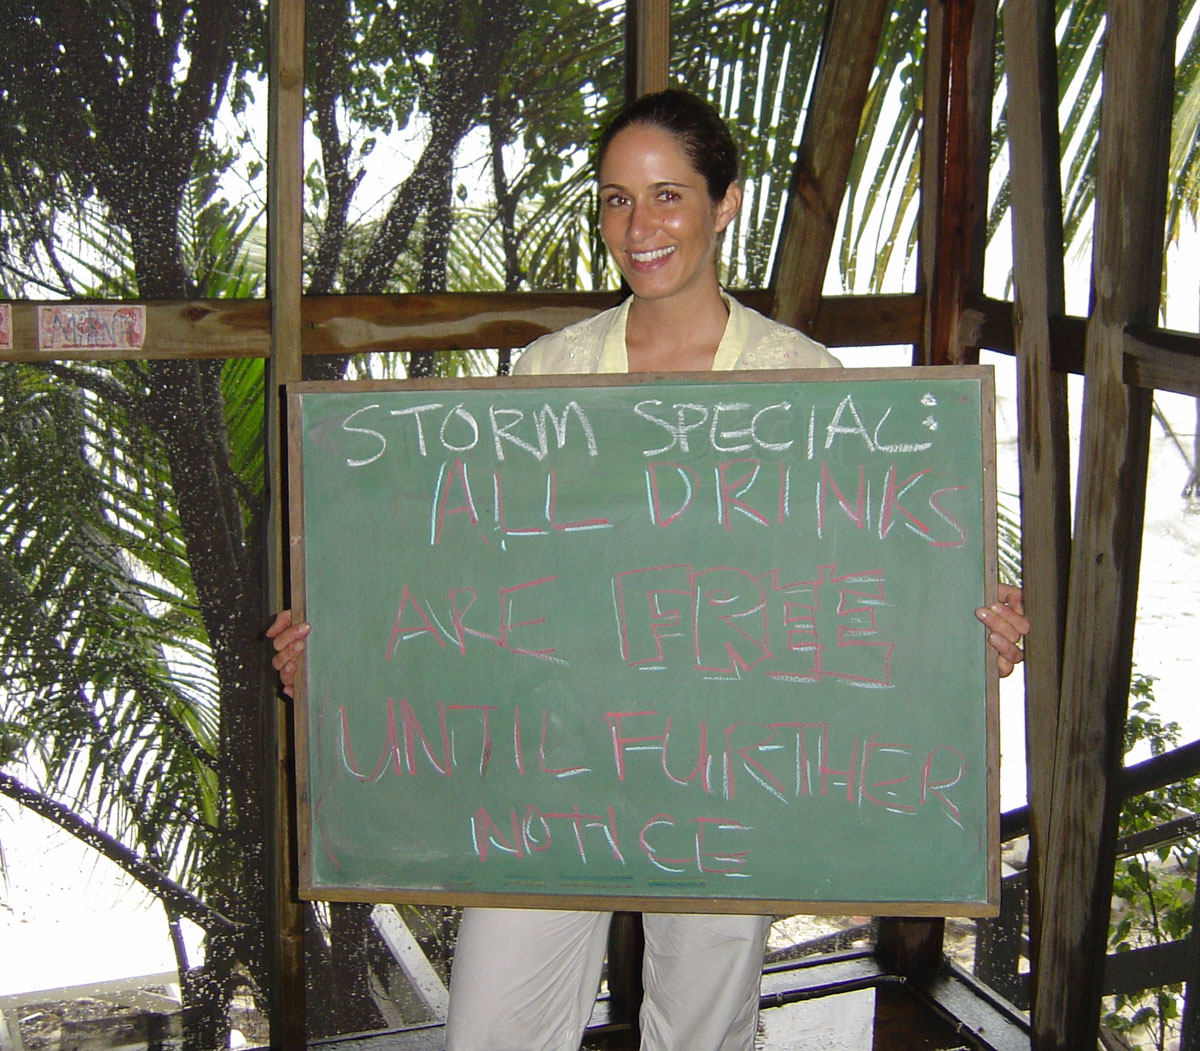 STORM SPECIAL:
ALL DRINKS
ARE FREE
UNTIL FURTHER
NOTICE